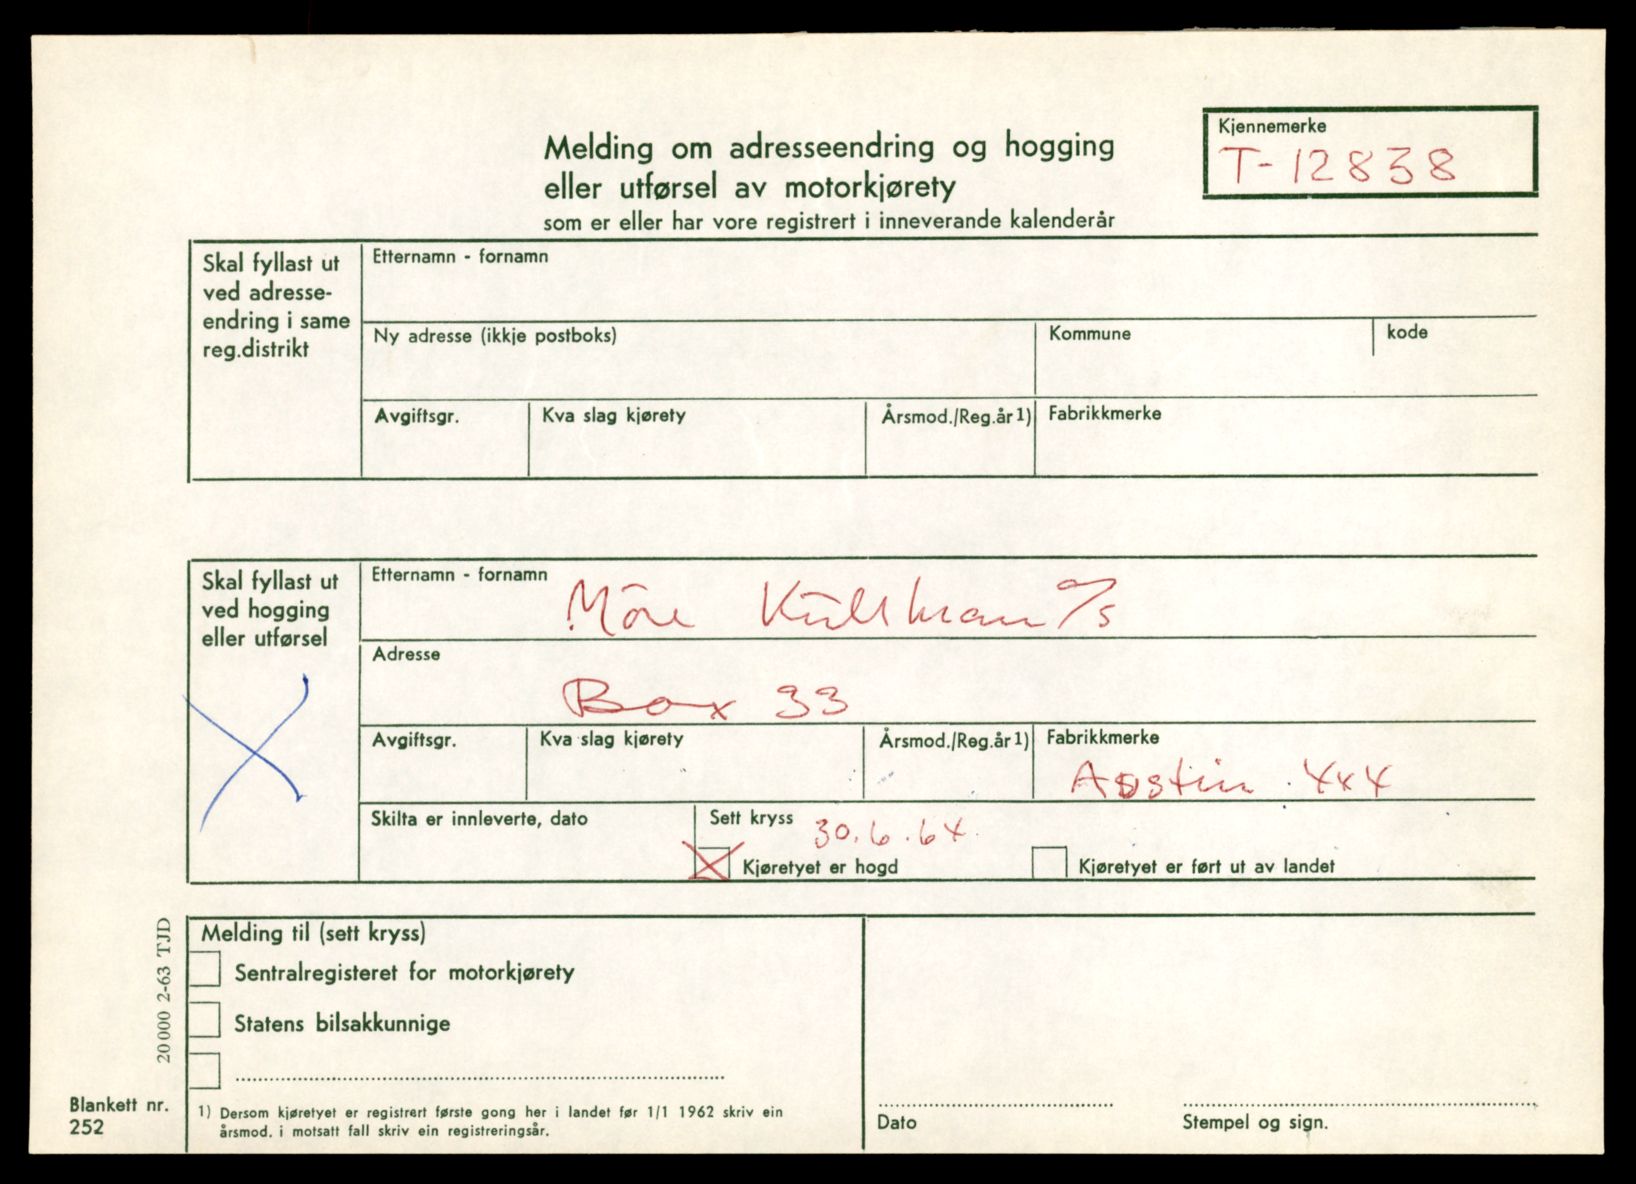 Kjennemerke
T-12838
Melding om adresseendring og hogging
eller utførsel av motorkjørety
som er eller har vore registrert i inneverande kalenderår
Skal fyllast ut
ved adresse-
endring i same
reg.distrikt
Etternamn - fornamn
Ny adresse (ikkje postboks)
Kommune
kode
Avgiftsgr.
Kva slag kjørety
Årsmod./Reg.år 1)
Fabrikkmerke
Skal fyllast ut
ved hogging
eller utførsel
Etternamn - fornamn
Möre Kullkran a/s
Adresse
Box 33
Avgiftsgr.
Kva slag kjørety
Årsmod./Reg.år 1)
Fabrikkmerke
Austin 4x4
Skilta er innleverte, dato
Sett kryss
30.6.64.
Kjøretyet er hogd
Kjøretyet er ført ut av landet
Melding til (sett kryss)
Sentralregisteret for motorkjørety
Statens bilsakkunnige
20000 2-63 TJD
Blankett nr.
252
1) Dersom kjøretyet er registrert første gong her i landet før 1/1 1962 skriv ein
årsmod. i motsatt fall skriv ein registreringsår.
Dato
Stempel og sign.